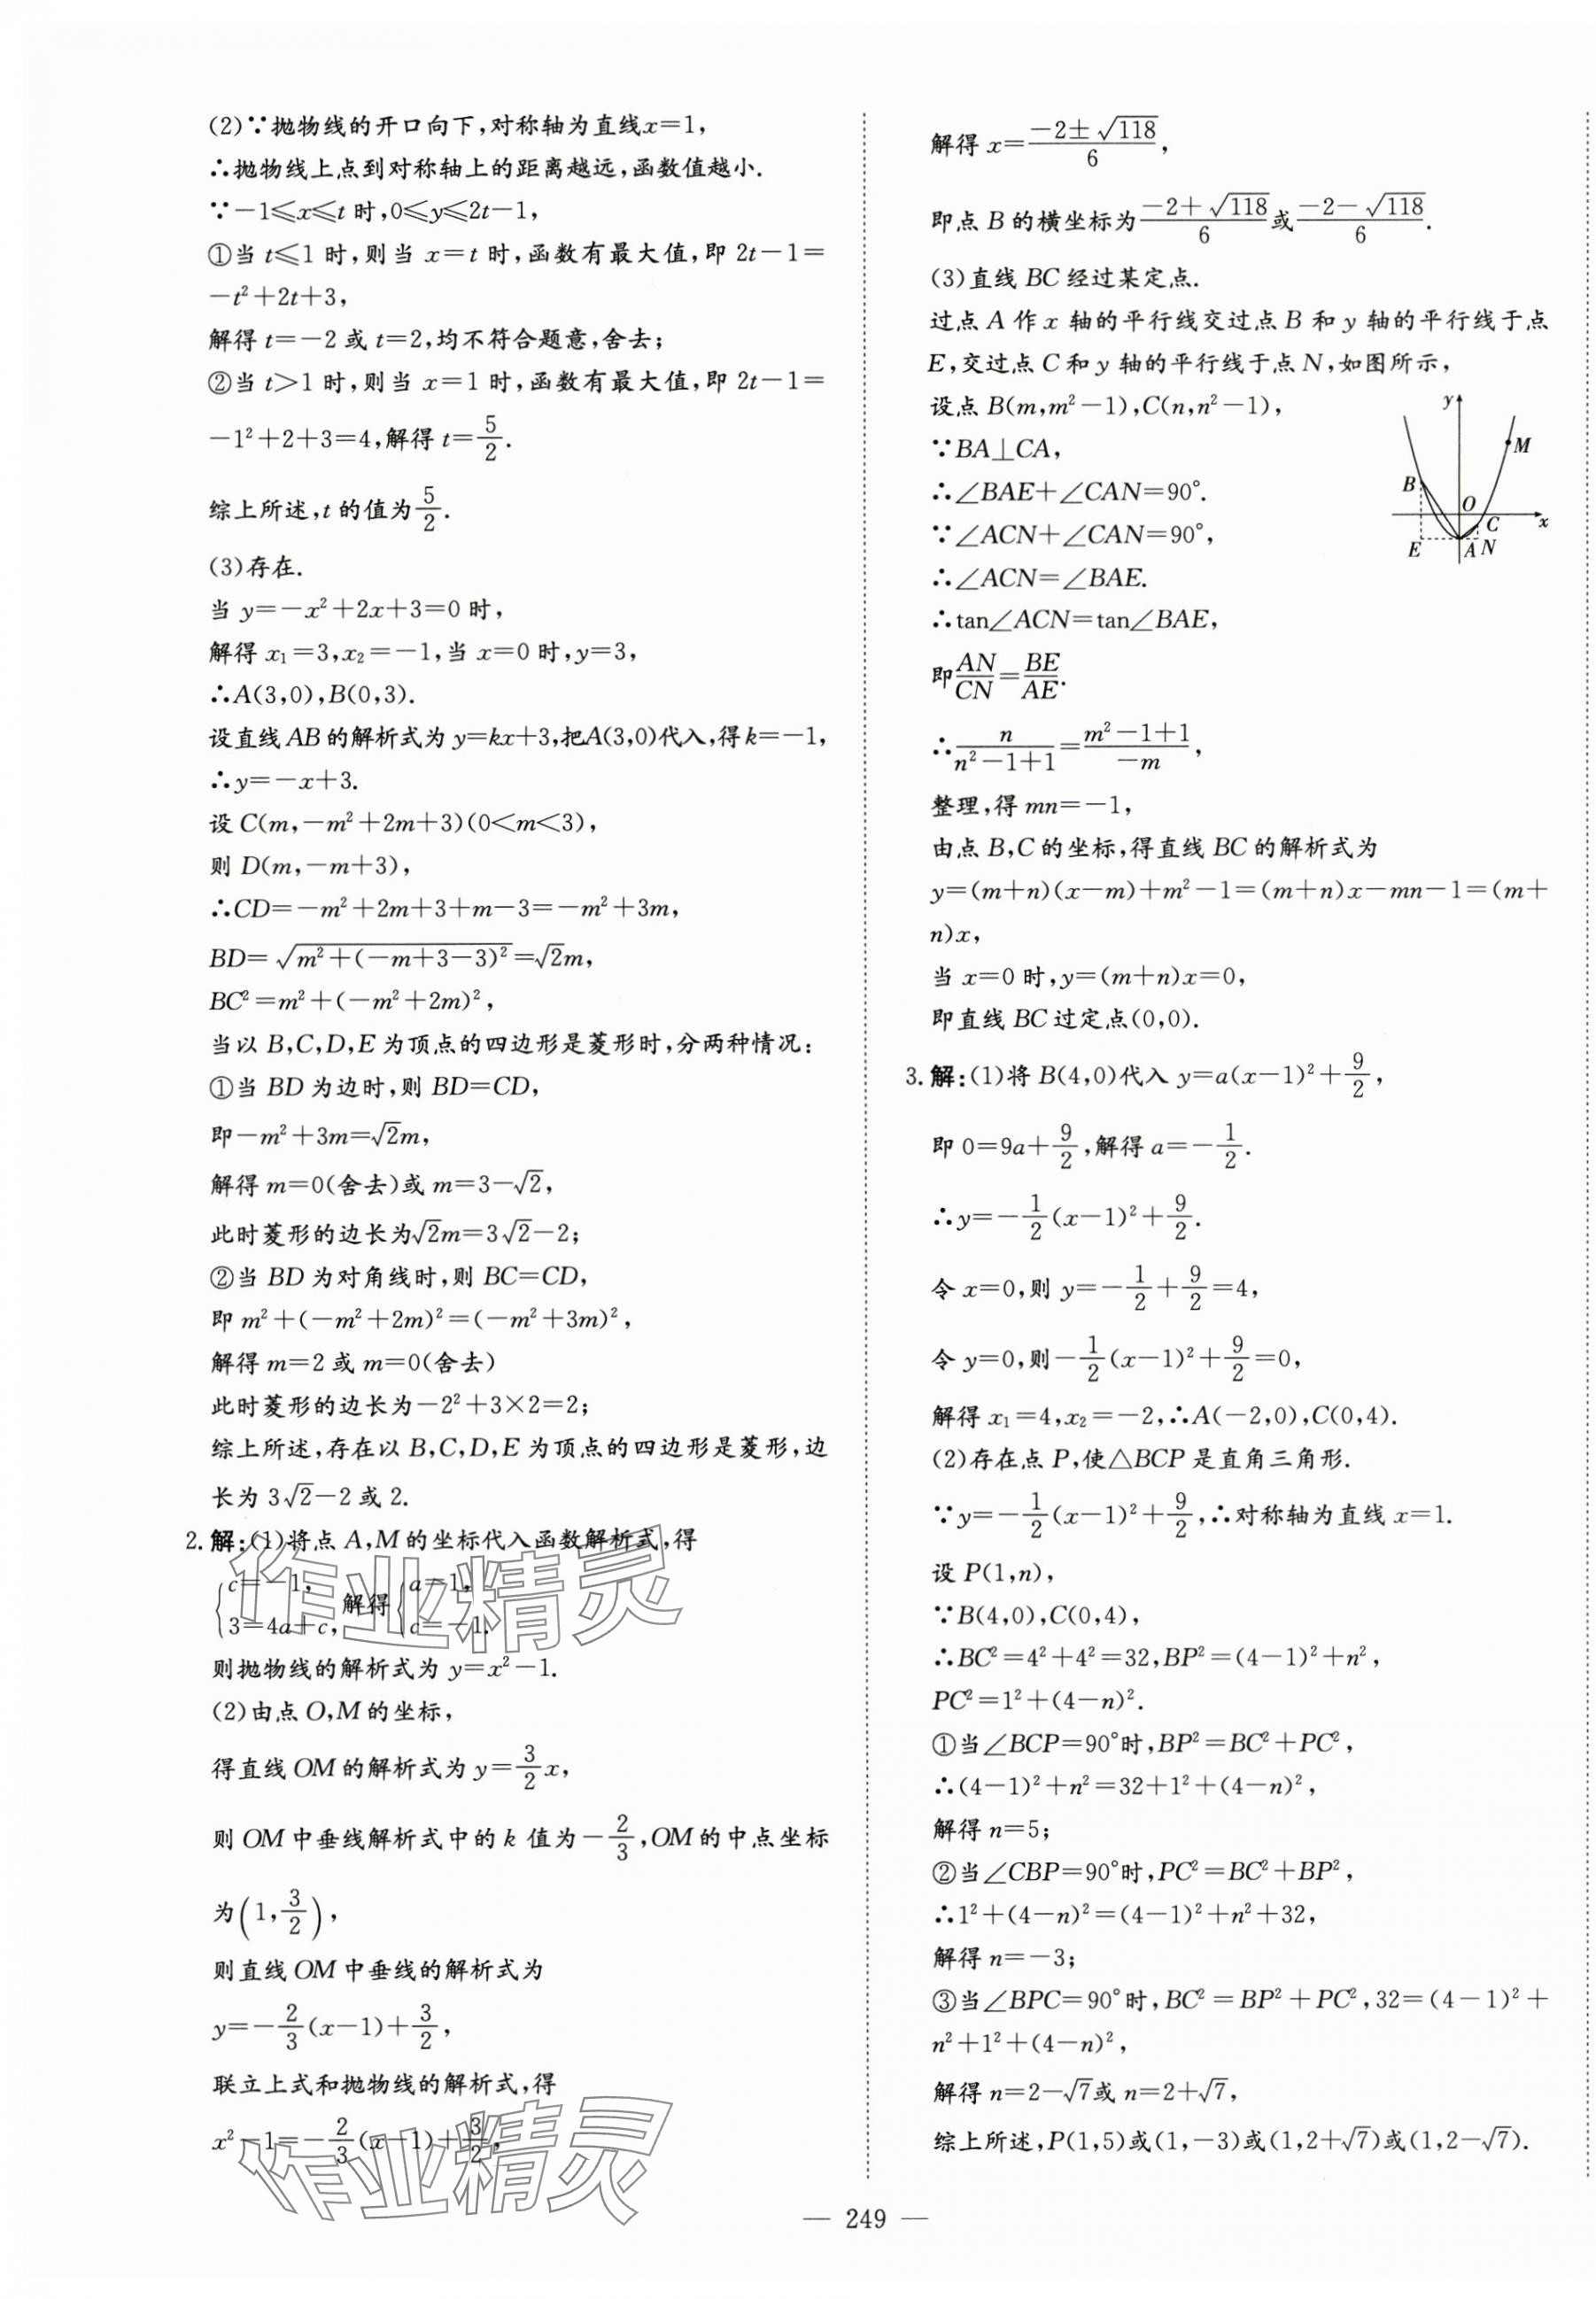 (2)∵抛物线的开口向下,对称轴为直线x=1,
∴抛物线上点到对称轴上的距离越远,函数值越小.
∵-1⩽x⩽t时,0⩽y⩽2t-1,
①当t⩽1时,则当x=t时,函数有最大值,即2t-1=
-t²+2t+3,
解得t=-2或t=2,均不符合题意,舍去;
②当t>1时,则当x=1时,函数有最大值,即2t-1=
-1²+2+3=4,解得t=5/2.
综上所述,t的值为5/2.
(3)存在.
当y=-x²+2x+3=0时,
解得x₁=3,x₂=-1,当x=0时,y=3,
∴A(3,0),B(0,3).
设直线AB的解析式为y=kx+3,把A(3,0)代入,得k=-1,
∴y=-x+3.
设C(m,-m²+2m+3)(0<m<3),
则D(m,-m+3),
∴CD=-m²+2m+3+m-3=-m²+3m,
BD=√(m²+(-m+3-3)²)=√2m,
BC²=m²+(-m²+2m)²,
当以B,C,D,E为顶点的四边形是菱形时,分两种情况:
①当BD为边时,则BD=CD,
即-m²+3m=√2m,
解得m=0(舍去)或m=3-√2,
此时菱形的边长为√2m=3√2-2;
②当BD为对角线时,则BC=CD,
即m²+(-m²+2m)²=(-m²+3m)²,
解得m=2或m=0(舍去)
此时菱形的边长为-2²+3×2=2;
综上所述,存在以B,C,D,E为顶点的四边形是菱形,边
长为3√2-2或2.
2.解:(1)将点A,M的坐标代入函数解析式,得
{c=-1, 3=4a+c, 解得{a=1, c=-1.
则抛物线的解析式为y=x²-1.
(2)由点O,M的坐标,
得直线OM的解析式为y=3/2x,
则OM中垂线解析式中的k值为-2/3,OM的中点坐标
为(1,3/2),
则直线OM中垂线的解析式为
y=-2/3(x-1)+3/2,
联立上式和抛物线的解析式,得
x²-1=-2/3(x-1)+3/2,
解得x=(-2±√118)/6,
即点B的横坐标为(-2+√118)/6或(-2-√118)/6.
(3)直线BC经过某定点.
过点A作x轴的平行线交过点B和y轴的平行线于点
E,交过点C和y轴的平行线于点N,如图所示,
设点B(m,m²-1),C(n,n²-1),
∵BA⊥CA,
∴∠BAE+∠CAN=90°.
∵∠ACN+∠CAN=90°,
∴∠ACN=∠BAE.
∴tan∠ACN=tan∠BAE,
即AN/CN=BE/AE.
∴n/(n²-1+1)=(m²-1+1)/(-m),
整理,得mn=-1,
由点B,C的坐标,得直线BC的解析式为
y=(m+n)(x-m)+m²-1=(m+n)x-mn-1=(m+
n)x,
当x=0时,y=(m+n)x=0,
即直线BC过定点(0,0).
y
M
B
O
C
x
E
A
N
3.解:(1)将B(4,0)代入y=a(x-1)²+9/2,
即0=9a+9/2,解得a=-1/2.
∴y=-1/2(x-1)²+9/2.
令x=0,则y=-1/2+9/2=4,
令y=0,则-1/2(x-1)²+9/2=0,
解得x₁=4,x₂=-2,∴A(-2,0),C(0,4).
(2)存在点P,使△BCP是直角三角形.
∵y=-1/2(x-1)²+9/2,∴对称轴为直线x=1.
设P(1,n),
∵B(4,0),C(0,4),
∴BC²=4²+4²=32,BP²=(4-1)²+n²,
PC²=1²+(4-n)².
①当∠BCP=90°时,BP²=BC²+PC²,
∴(4-1)²+n²=32+1²+(4-n)²,
解得n=5;
②当∠CBP=90°时,PC²=BC²+BP²,
∴1²+(4-n)²=(4-1)²+n²+32,
解得n=-3;
③当∠BPC=90°时,BC²=BP²+PC²,32=(4-1)²+
n²+1²+(4-n)²,
解得n=2-√7或n=2+√7,
综上所述,P(1,5)或(1,-3)或(1,2+√7)或(1,2-√7).
作业精灵
作业精灵
— 249 —